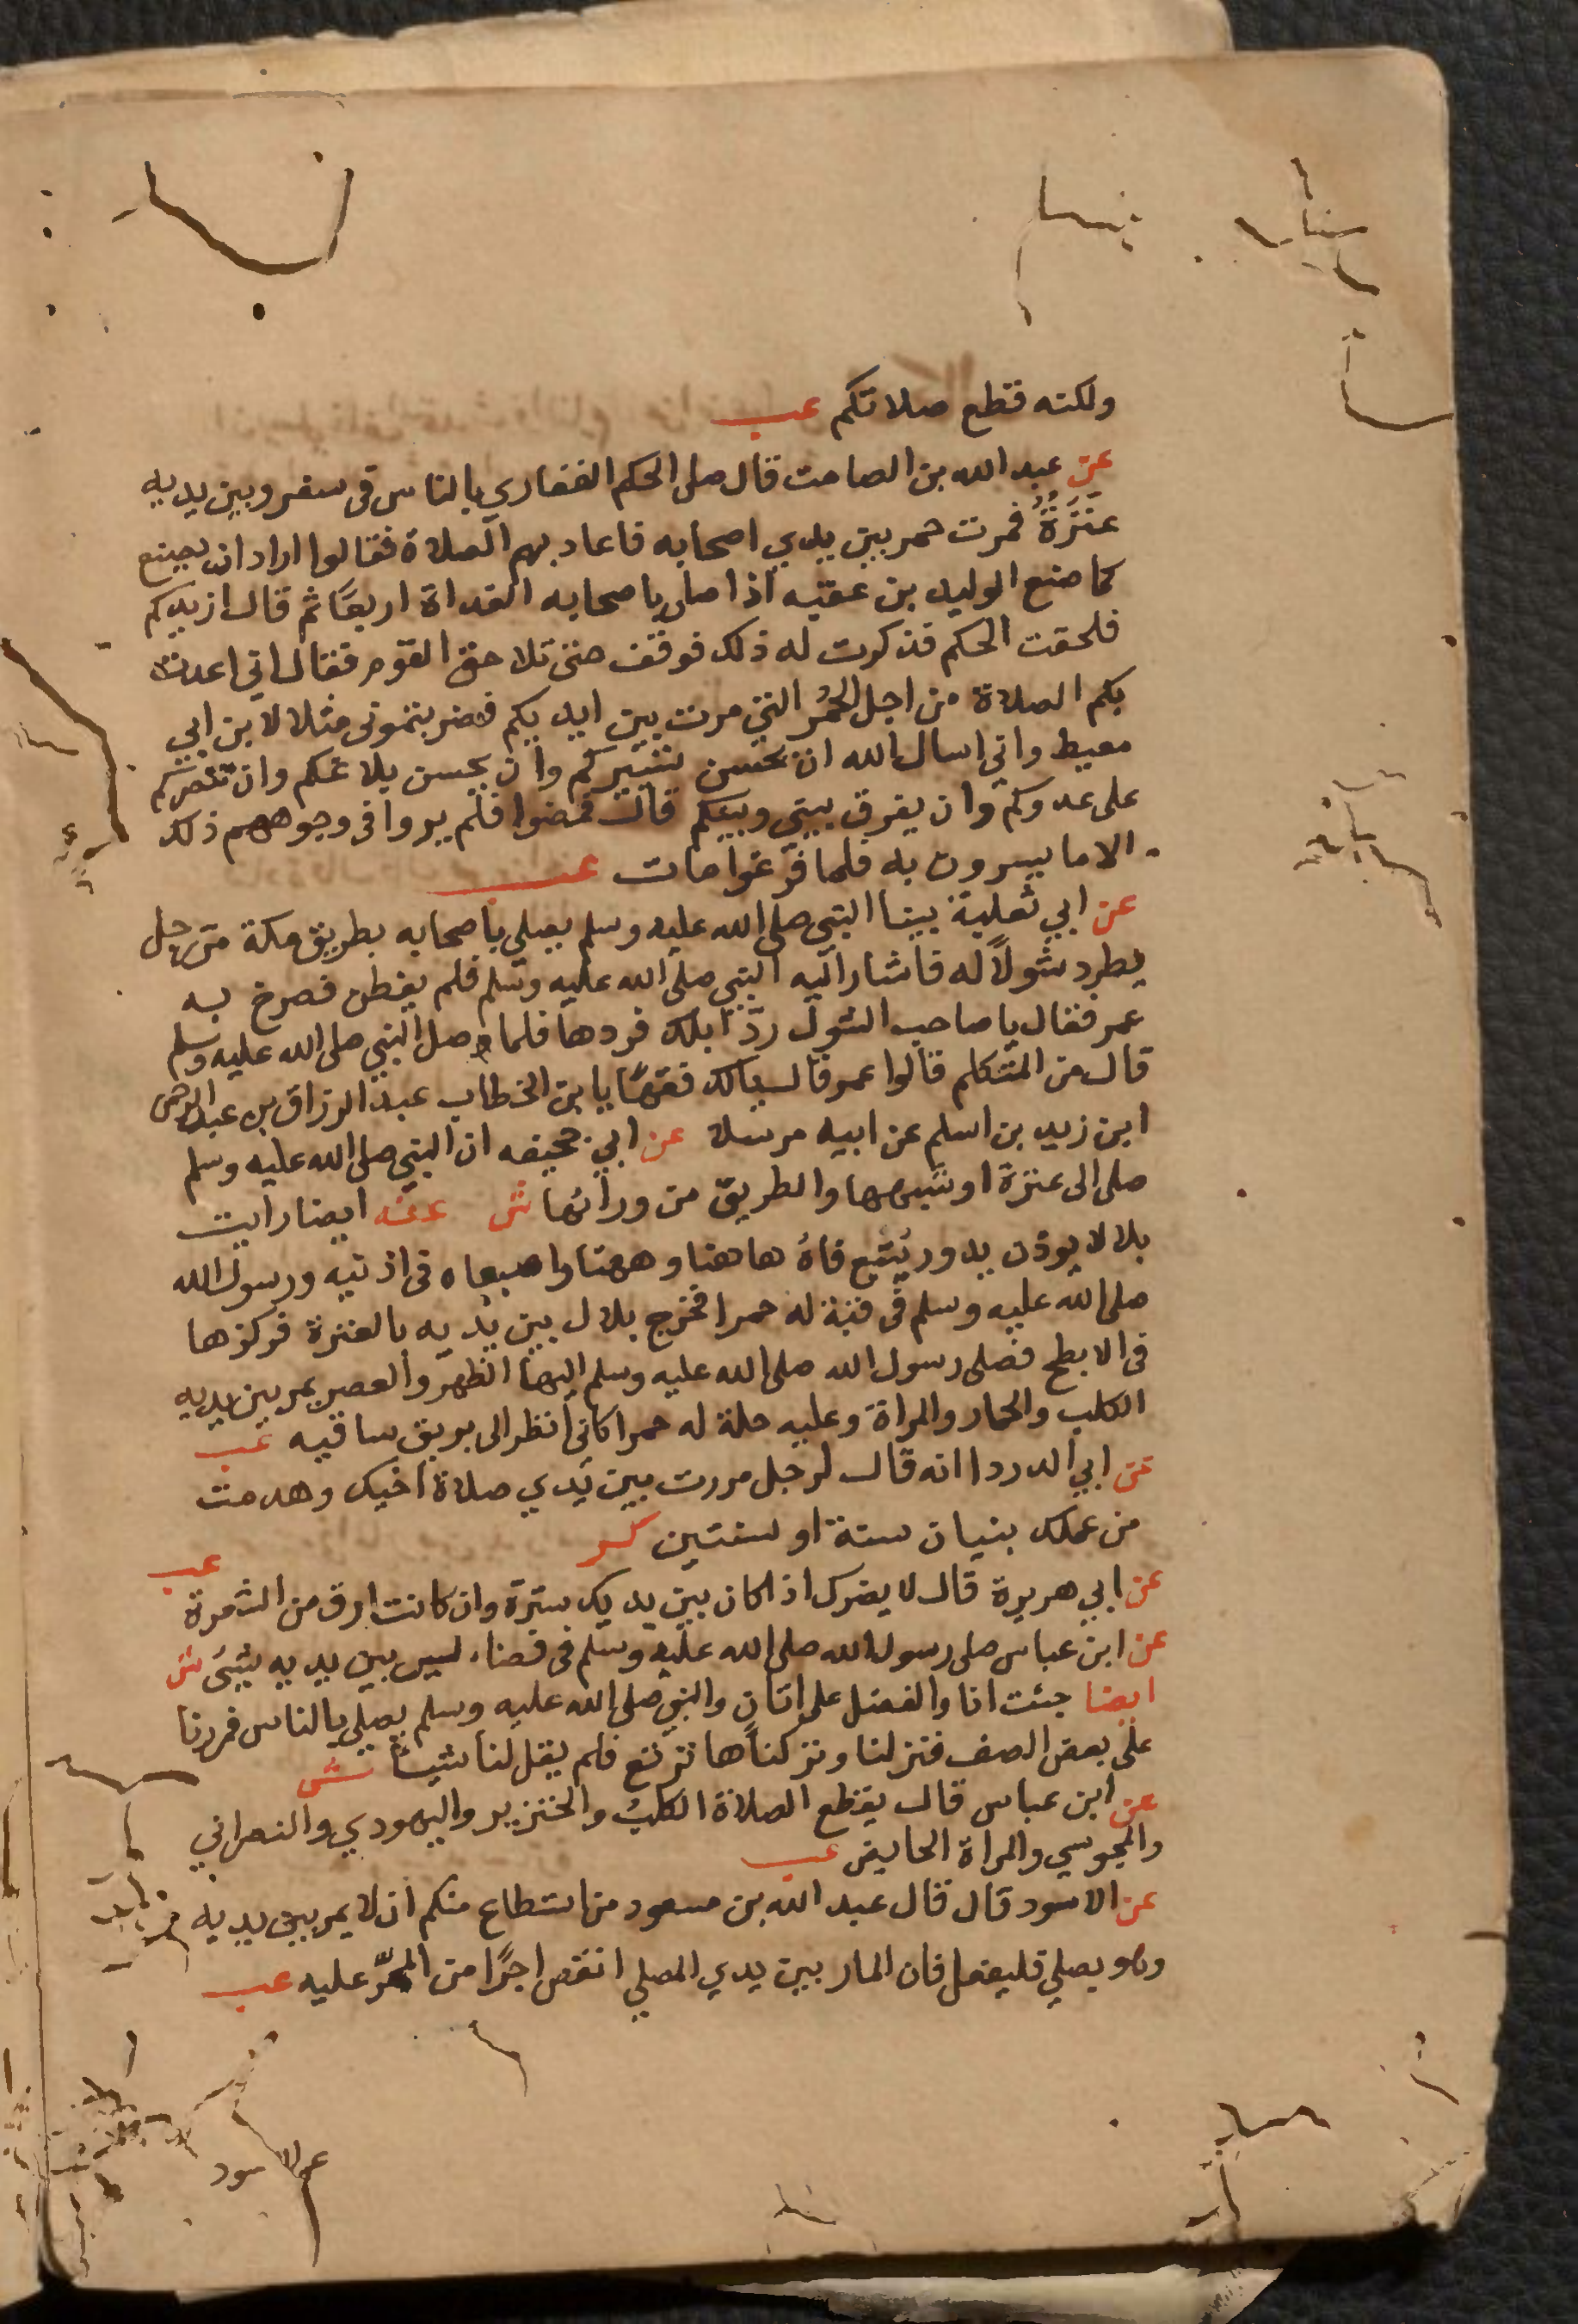 ولكنه قطع صلاتكم عب
عن عبد الله بن الصامت قال صلى الحكم الغفاري بالناس في سفر وبين يديه
عَنَزَةٌ فمرت حمر بين يدي اصحابه فاعاد بهم الصلاة فقالوا اراد ان يصنع
كما صنع الوليد بن عقبه اذا صلى باصحابه الغداة اربعًا ثم قال ازيدكم
فلحقت الحكم فذكرت له ذلك فوقف حتى تلاحق القوم فقال اني اعدت
بكم الصلاة من اجل الحُمُر التي مرت بين ايديكم فضربتموني مثلا لابن ابي
معيط واني اسال الله ان يحسن تسييركم وان يحسن بلاغكم وان ينصركم
على عدوكم وان يفرق بيني وبينكم قال فمضوا فلم يروا في وجوههم ذلك
الا ما يسرون به فلما فرغوا مات عب
عن ابي ثعلبة بينا النبي صلى الله عليه وسلم يصلي باصحابه بطريق مكة مر رجل
يطرد شولًا له فاشار اليه النبي صلى الله عليه وسلم فلم يفطن فصرخ به
عمر فقال يا صاحب الشول ردّ ابلك فردها فلما صلى النبي صلى الله عليه وسلم
قال من المتكلم قالوا عمر قال يالك فقهًا يا بن الخطاب عبد الرزاق عن عبد الرحمن
ابن زيد بن اسلم عن ابيه مرسلا عن ابي جحيفه ان النبي صلى الله عليه وسلم
صلى الى عنزة او شبهها والطريق من ورائها ش عنه ايضا رايت
بلالا يوذن يدور يُتبع فاهُ هاهنا وههنا واصبعاه في اذنيه ورسول الله
صلى الله عليه وسلم في قبة له حمرا فخرج بلال بين يديه بالعنزة فركزها
في الابطح فصلى رسول الله صلى الله عليه وسلم اليها الظهر والعصر يمر بين يديه
الكلب والحمار والمراة وعليه حلة له حمرا كاني انظر الى بريق ساقيه عب
عن ابي الدردا انه قال لرجل مررت بين يدي صلاة اخيك وهدمت
من عملك بنيان سنة او سنتين كر
عن ابي هريرة قال لا يضرك اذا كان بين يديك سترة وان كانت ادق من الشعرة عب
عن ابن عباس صلى رسول الله صلى الله عليه وسلم في فضاء ليس بين يديه شيئ ش
ايضا جئت انا والفضل على اتان والنبي صلى الله عليه وسلم يصلي بالناس فمررنا
على بعض الصف فنزلنا وتركناها ترتع فلم يقل لنا شيئًا ش
عن ابن عباس قال يقطع الصلاة الكلبُ والخنزير واليهودي والنصراني
والمجوسي والمراة الحايض عب
عن الاسود قال قال عبد الله بن مسعود من استطاع منكم ان لا يمر بين يديه
وهو يصلي فليفعل فان المار بين يدي المصلي انقص اجرًا من الممرّ عليه عب